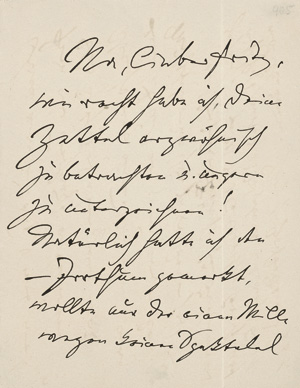 Na, lieber Fritz,
wie recht habe ich, Deine
Zettel argwöhnisch
zu betrachten u. ungern
zu unterzeichnen!
Natürlich hatte ich den
— Irrthum gemerkt,
wollte aus der einen Mill
wegen keinen Spektakel